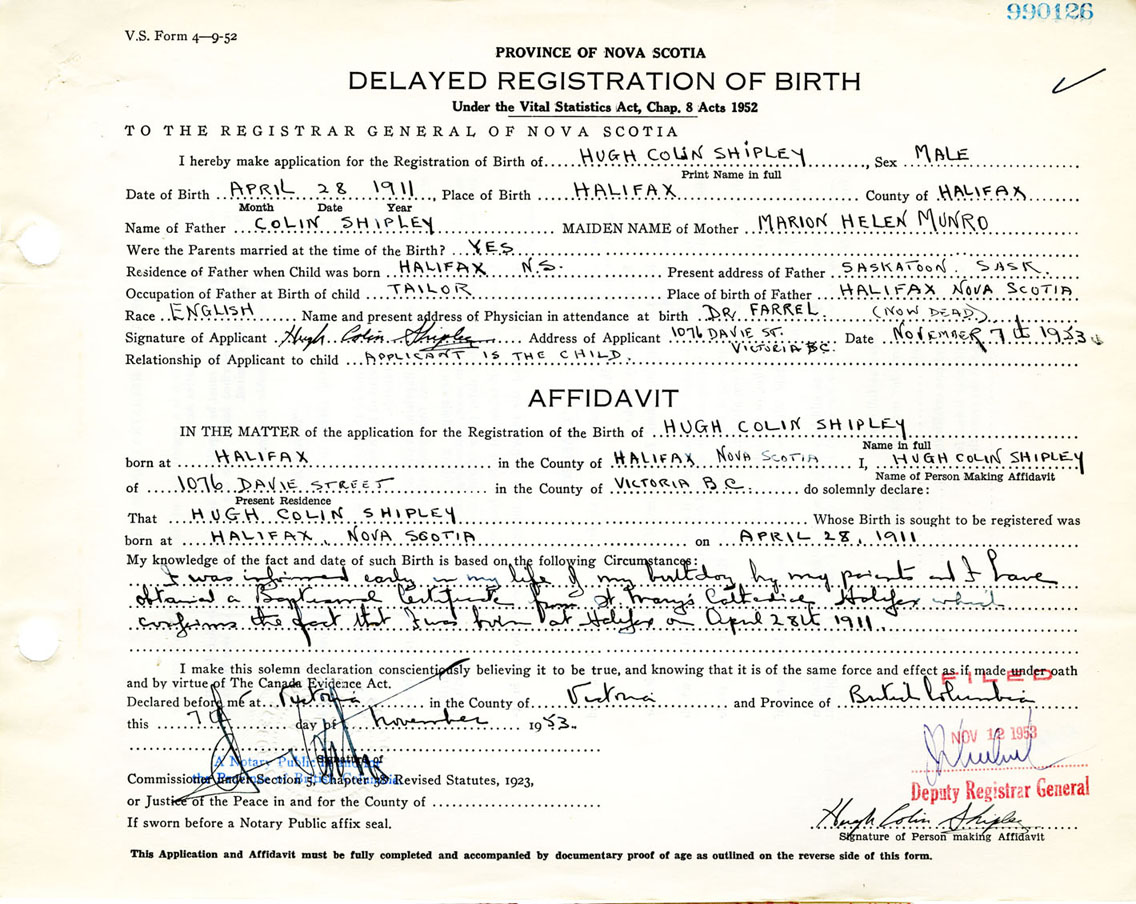 990126
V.S. Form 4—9-52
PROVINCE OF NOVA SCOTIA
DELAYED REGISTRATION OF BIRTH
Under the Vital Statistics Act, Chap. 8 Acts 1952
TO THE REGISTRAR GENERAL OF NOVA SCOTIA
I hereby make application for the Registration of Birth of HUGH COLIN SHIPLEY, Sex MALE
Print Name in full
Date of Birth APRIL 28 1911, Place of Birth HALIFAX County of HALIFAX
Month Date Year
Name of Father COLIN SHIPLEY MAIDEN NAME of Mother MARION HELEN MUNRO
Were the Parents married at the time of the Birth? YES
Residence of Father when Child was born HALIFAX N.S. Present address of Father SASKATOON. SASK.
Occupation of Father at Birth of child TAILOR Place of birth of Father HALIFAX NOVA SCOTIA
Race ENGLISH Name and present address of Physician in attendance at birth DR. FARREL (NOW DEAD)
Signature of Applicant Hugh Colin Shipley Address of Applicant 1076 DAVIE ST. VICTORIA BC. Date NOVEMBER 7th 1953
Relationship of Applicant to child APPLICANT IS THE CHILD
AFFIDAVIT
IN THE MATTER of the application for the Registration of the Birth of HUGH COLIN SHIPLEY
Name in full
born at HALIFAX in the County of HALIFAX NOVA SCOTIA I, HUGH COLIN SHIPLEY
Name of Person Making Affidavit
of 1076 DAVIE STREET in the County of VICTORIA B.C. do solemnly declare:
Present Residence
That HUGH COLIN SHIPLEY Whose Birth is sought to be registered was
born at HALIFAX, NOVA SCOTIA on APRIL 28, 1911
My knowledge of the fact and date of such Birth is based on the following Circumstances:
I was informed early in my life of my birthday by my parents and I have
obtained a Baptismal Certificate from St Mary's Cathedral, Halifax which
confirms the fact that I was born at Halifax on April 28th 1911.
I make this solemn declaration conscientiously believing it to be true, and knowing that it is of the same force and effect as if made under oath
and by virtue of The Canada Evidence Act.
FILED
Declared before me at Victoria in the County of Victoria and Province of British Columbia
this 7th day of November 1953.
NOV 12 1953
Signature of
A Notary Public in and for
the Province of British Columbia
Commissioner under Section 5, Chapter 38 Revised Statutes, 1923,
Deputy Registrar General
or Justice of the Peace in and for the County of
Hugh Colin Shipley
If sworn before a Notary Public affix seal.
Signature of Person making Affidavit
This Application and Affidavit must be fully completed and accompanied by documentary proof of age as outlined on the reverse side of this form.